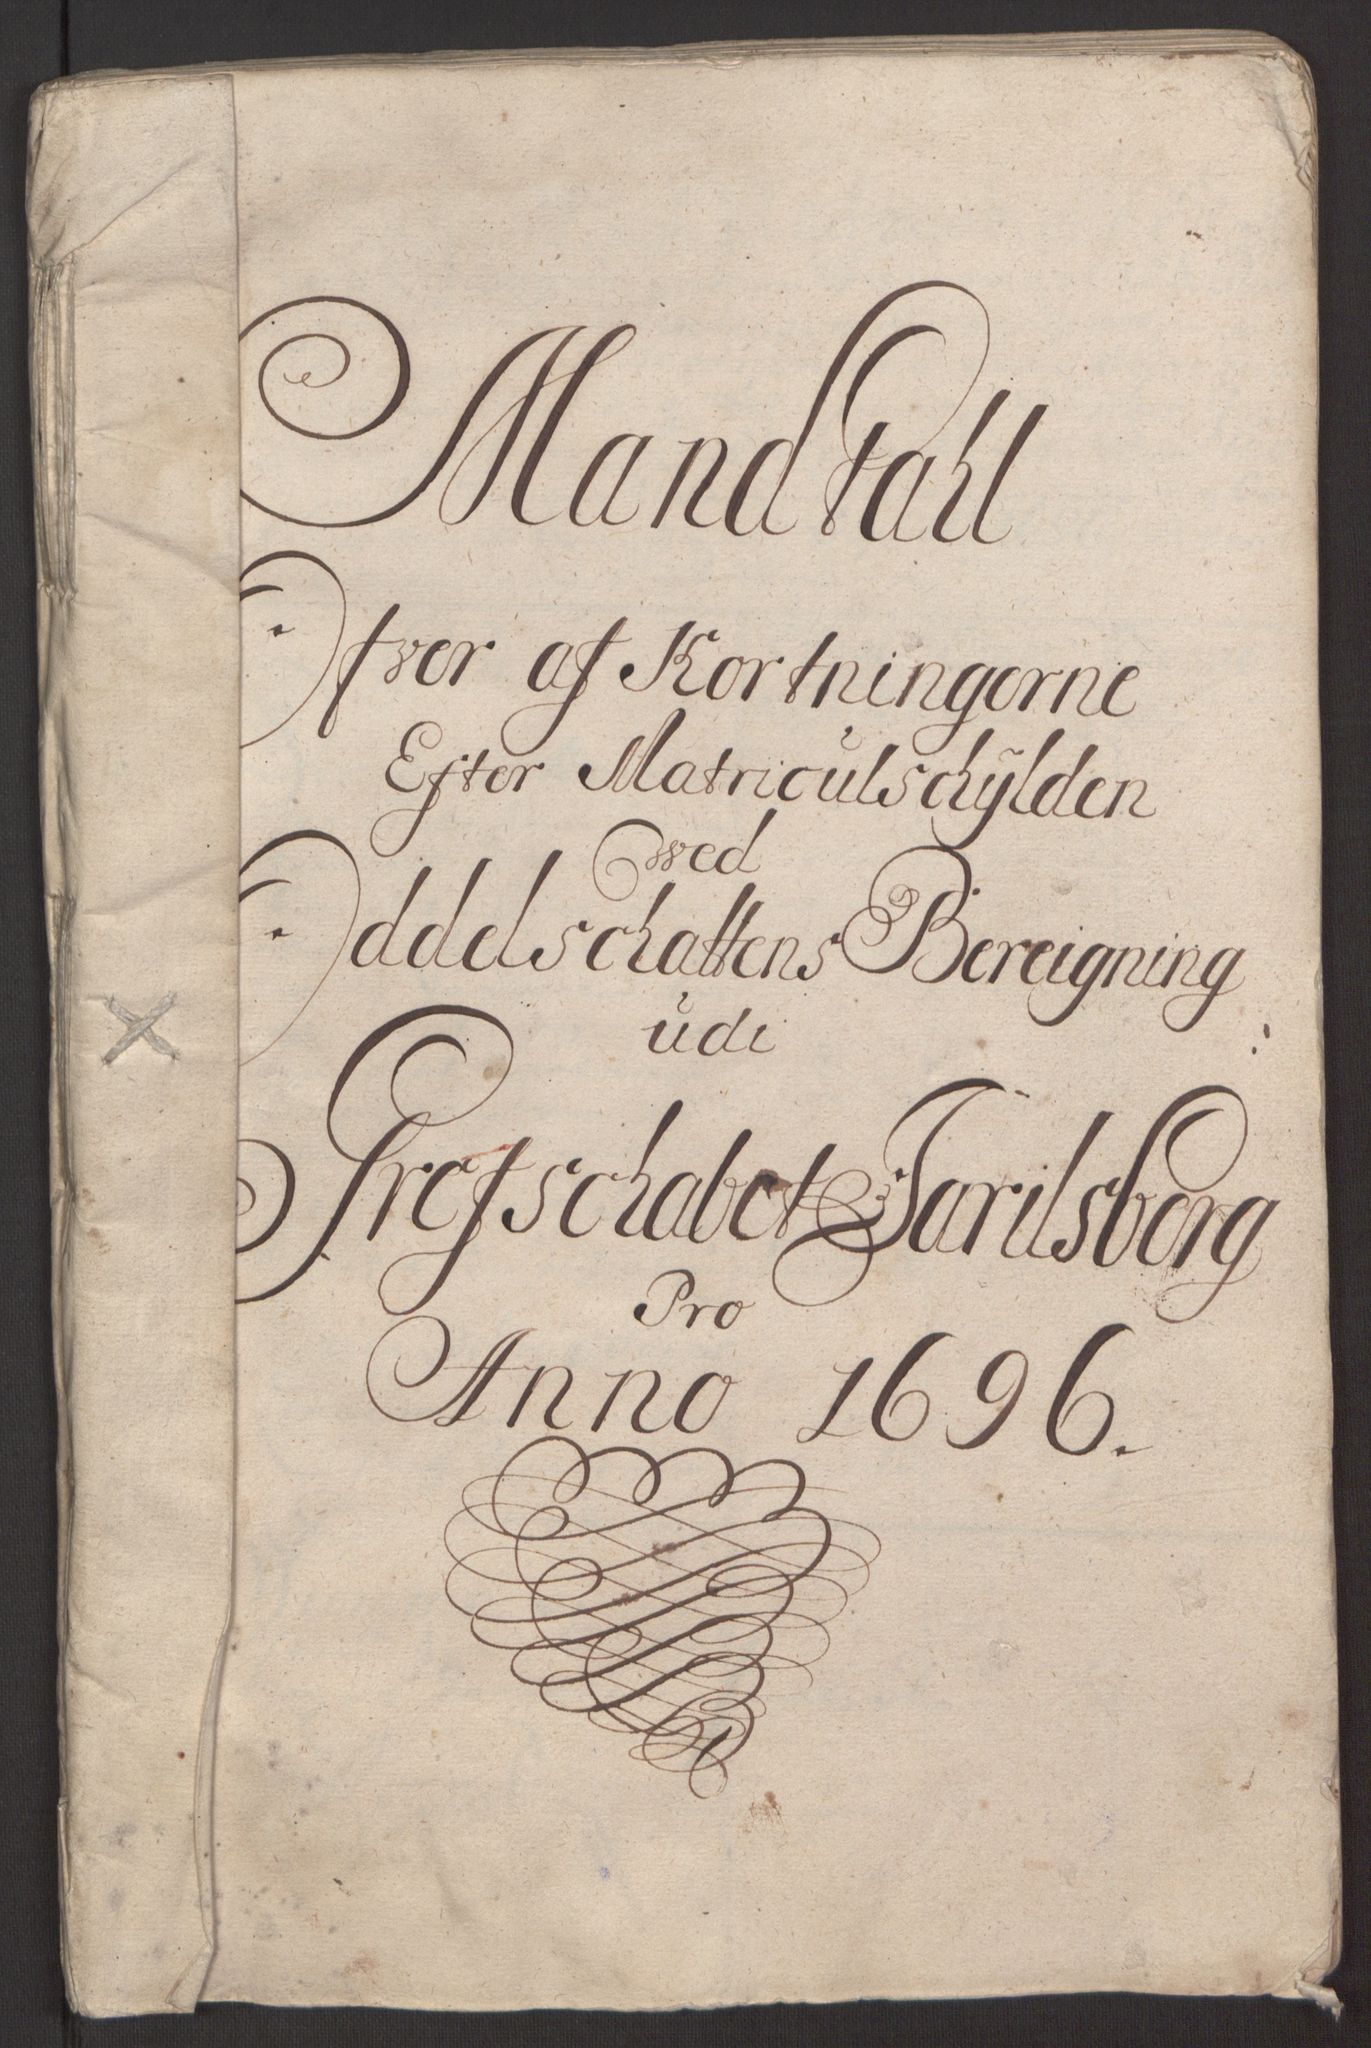 Mandtahl
Ofver af Kortningerne
Efter Matriculschÿlden
wed
Oddelschattens Bereigning
udi
Grefschabet Jarilsberg
Pro
Anno 1696.